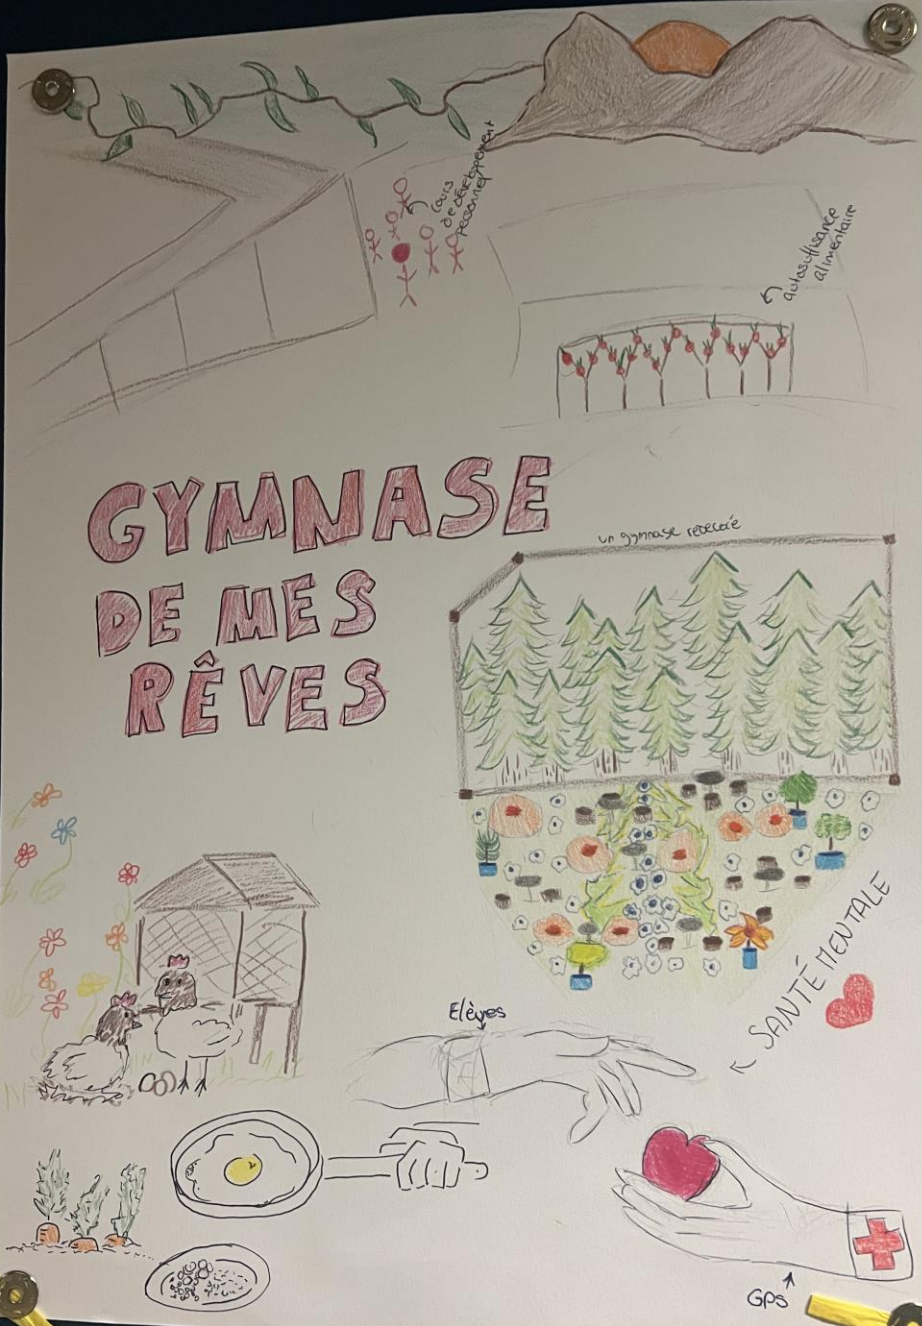 cours
de dévelopement
personnel
autosuffisance
alimentaire
GYMNASE
DE MES
RÊVES
un gymnase
SANTÉ MENTALE
Elèves
GPS